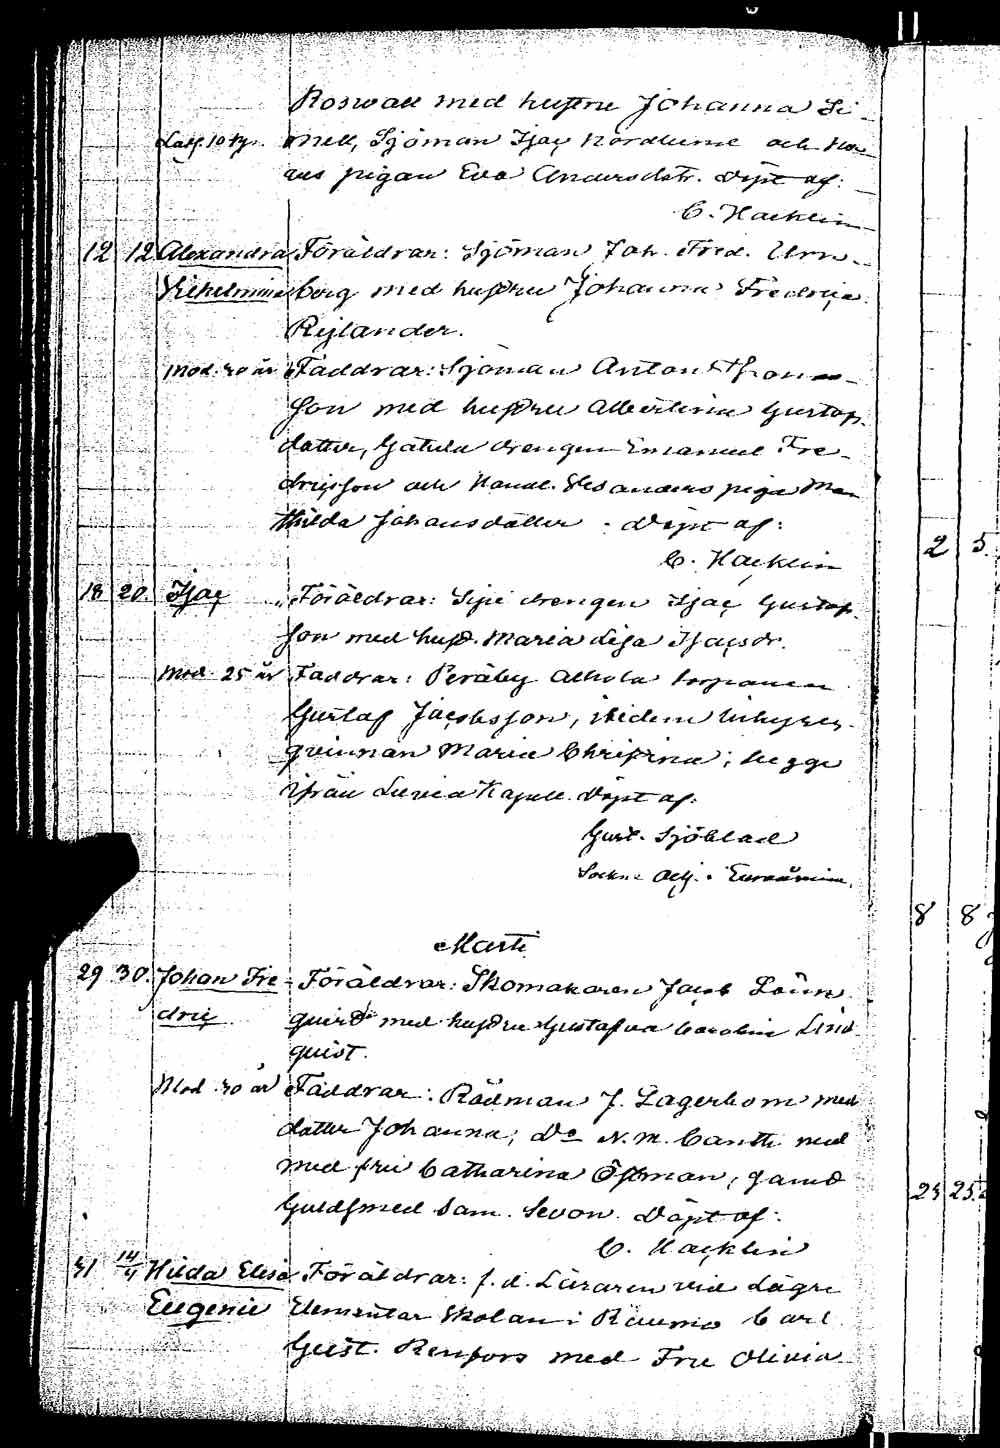 Roswall med hustru Johanna Si-
mell, Sjöman Isac Nordlund och
pigan Eva Andersdtr. Döpt af:
C. Hacklin
12 12 Alexandra Föräldrar: Sjöman Joh. Fred. Urn-
Vilhelmina berg med hustru Johanna Fredrica
Rylander.
Mod. 30 år Faddrar: Sjöman Anton Thomas-
son med hustru Albertina Gustafs-
dotter, drengen Emanuel Fre-
dricsson och Handl. piga Ma-
thilda Johansdotter. Döpt af:
C. Hacklin
2 5
18 20. Isac Föräldrar: drengen Isac Gustaf-
son med hust. Maria Lisa Isacsdr.
Mod. 25 år Faddrar: Peräby torparen
Gustaf Jacobsson, ibidem inhyses-
qvinnan Maria Christina; begge
ifrån Luvia Kapell. Döpt af:
Gust. Sjöblad
Sockne Adj. i Euraåminne.
8 8
Marti
29 30. Johan Fre- Föräldrar: Skomakaren Jacob Lönn-
dric quist med hustru Gustafva Carolina Lind-
quist.
Mod. 30 år Faddrar: Rådman J. Lagerbom med
dotter Johanna; Do N. M. Canth med
med fru Catharina Östman, samt
Guldsmed Sam. Sevon. Döpt af:
25 25
C. Hacklin
31 14/4 Hilda Elisa Föräldrar: f. d. Läraren vid Lägre
Eugenie Elementar Skolan i Raumo Carl
Gust. Renfors med Fru Olivia